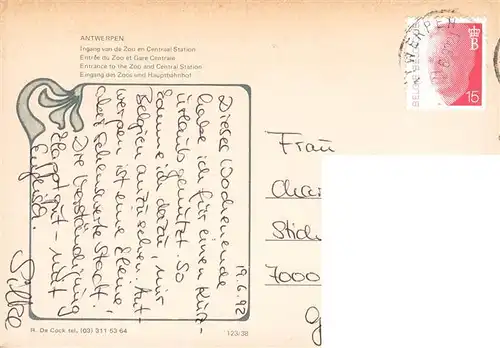 ANTWERPEN
Ingang van de Zoo en Centraal Station
Entrée du Zoo et Gare Centrale
Entrance to the Zoo and Central Station
Eingang des Zoos und Hauptbahnhof
19.6.92
Dieses Wochenende
habe ich für einen Kurz-
urlaub genutzt. So
komme ich dazu, mir
Belgien anzusehen. Ant-
werpen ist eine
aber sehenswerte Stadt.
Die Verständigung
klappt gut - mit
Englisch.
Silke
Frau
7000
BELGIE
B
15
R. De Cock tel. (03) 311 53 64
123/38